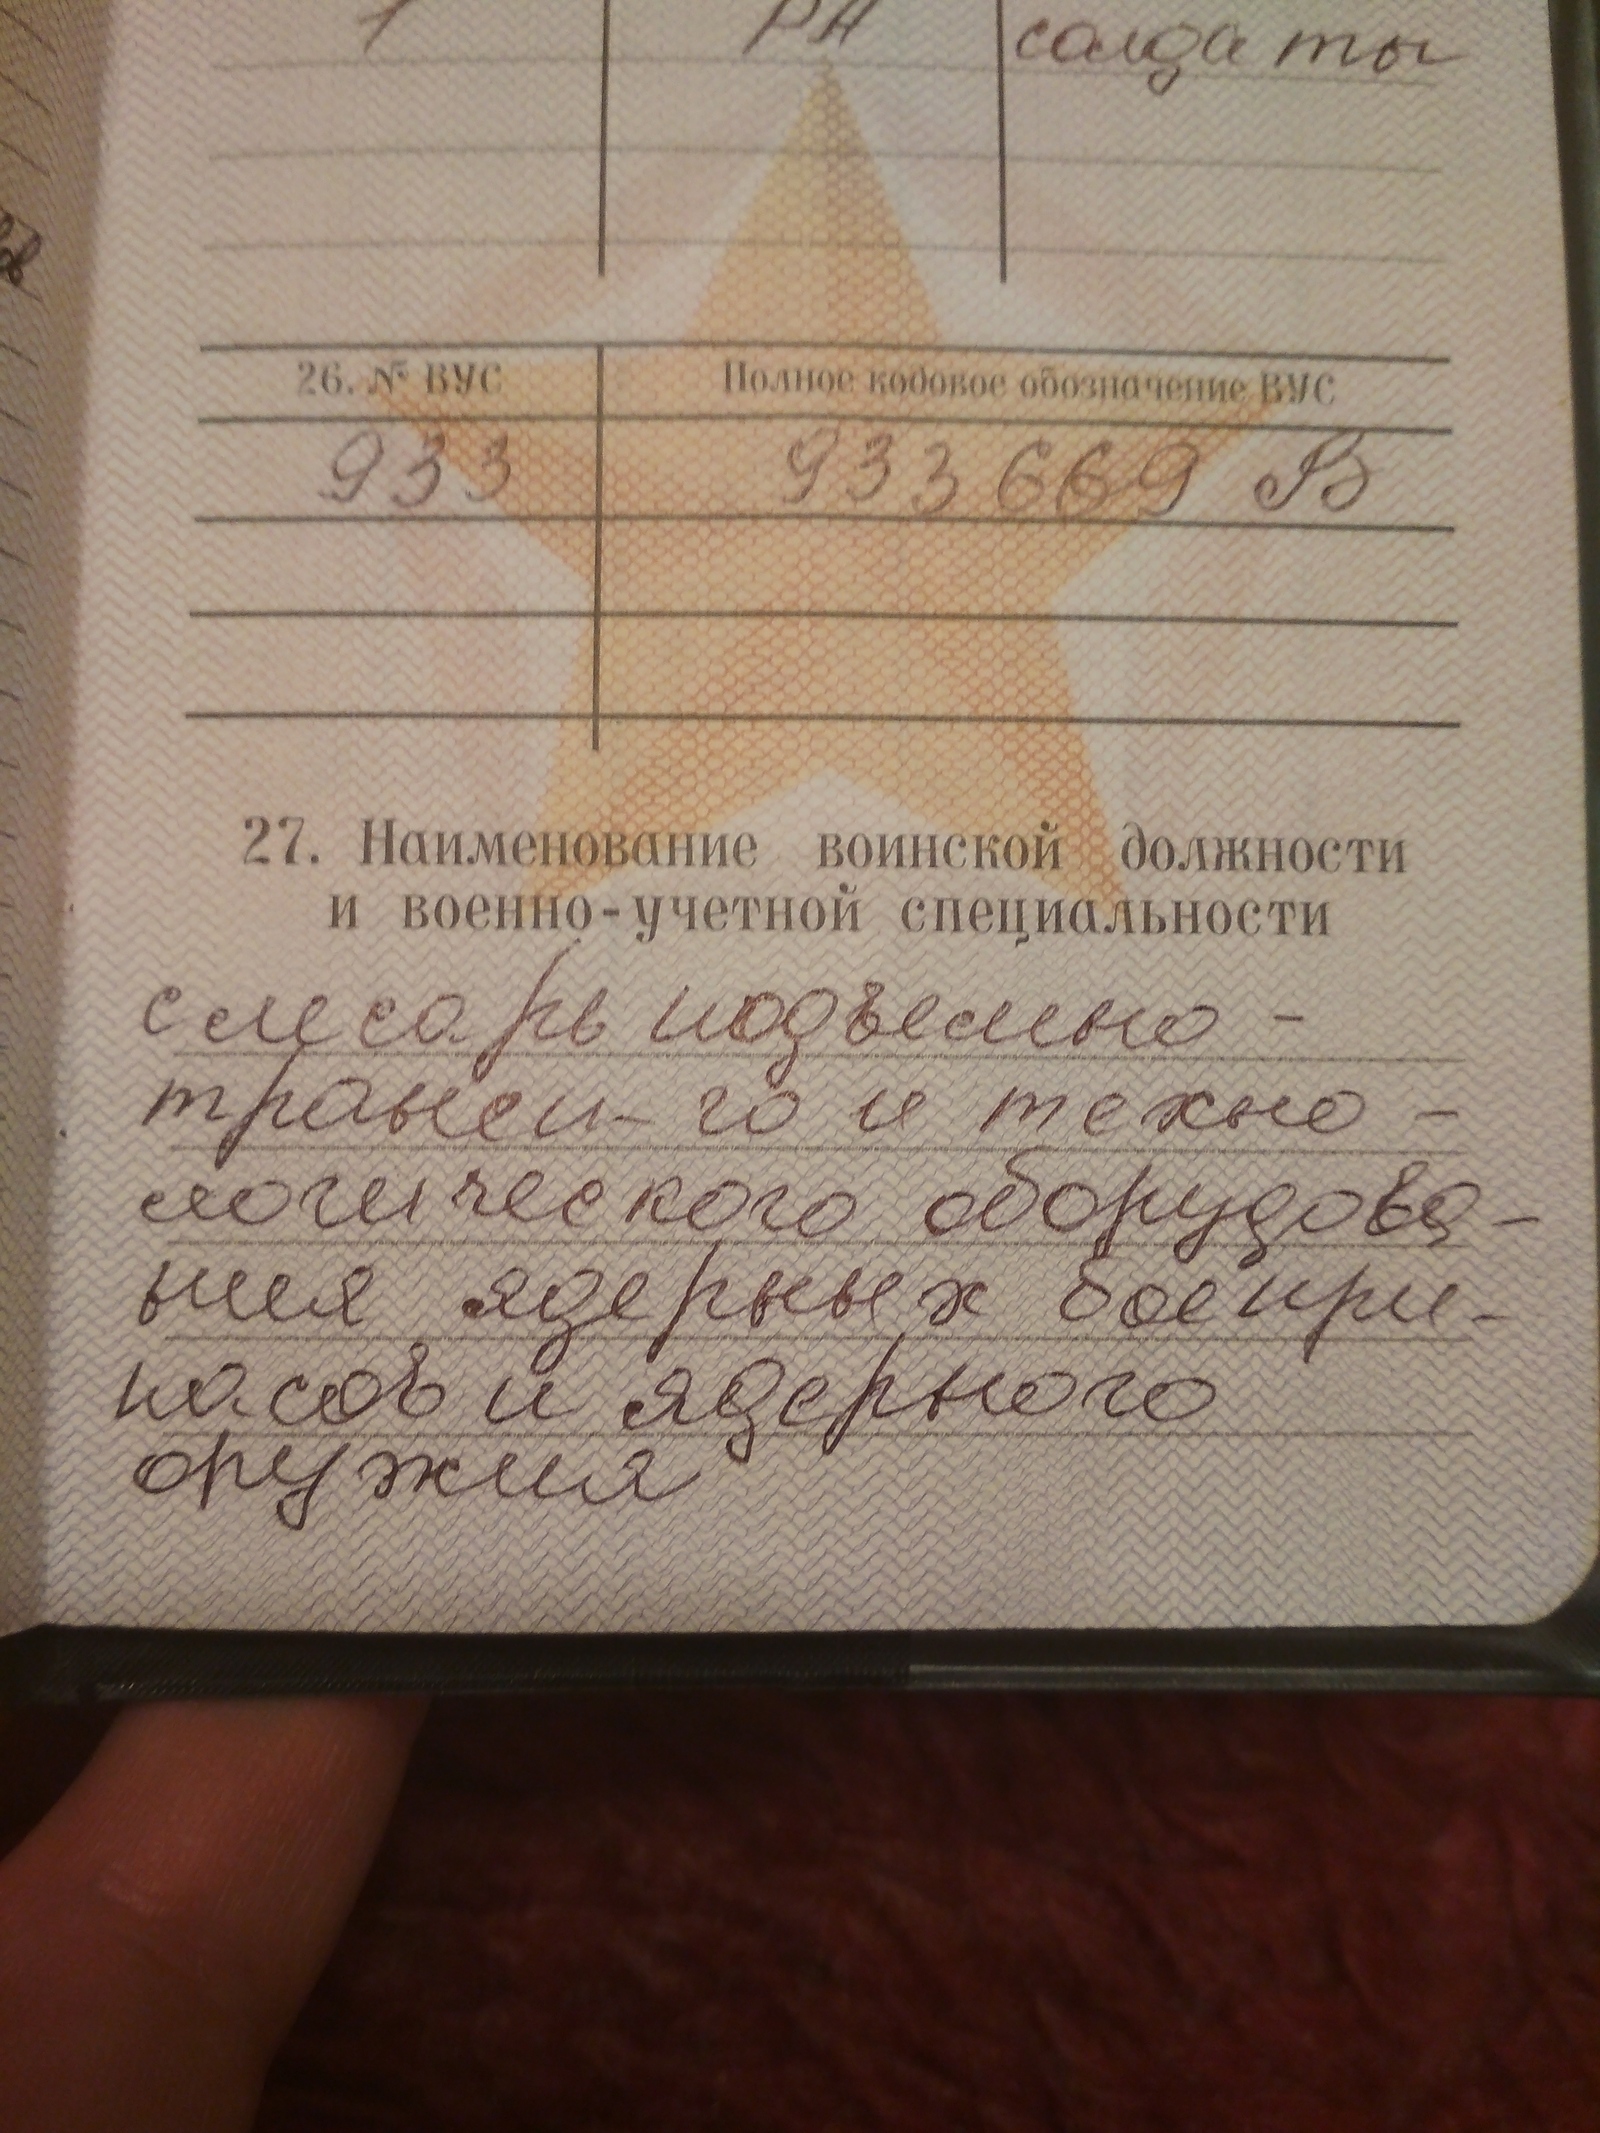 1 РА солдаты
26. № ВУС Полное кодовое обозначение ВУС
933 933669 В
27. Наименование воинской должности
и военно-учетной специальности
слесарь подъемно-
трансп-го и техно-
логического оборудова-
ния ядерных боепри-
пасов и ядерного
оружия